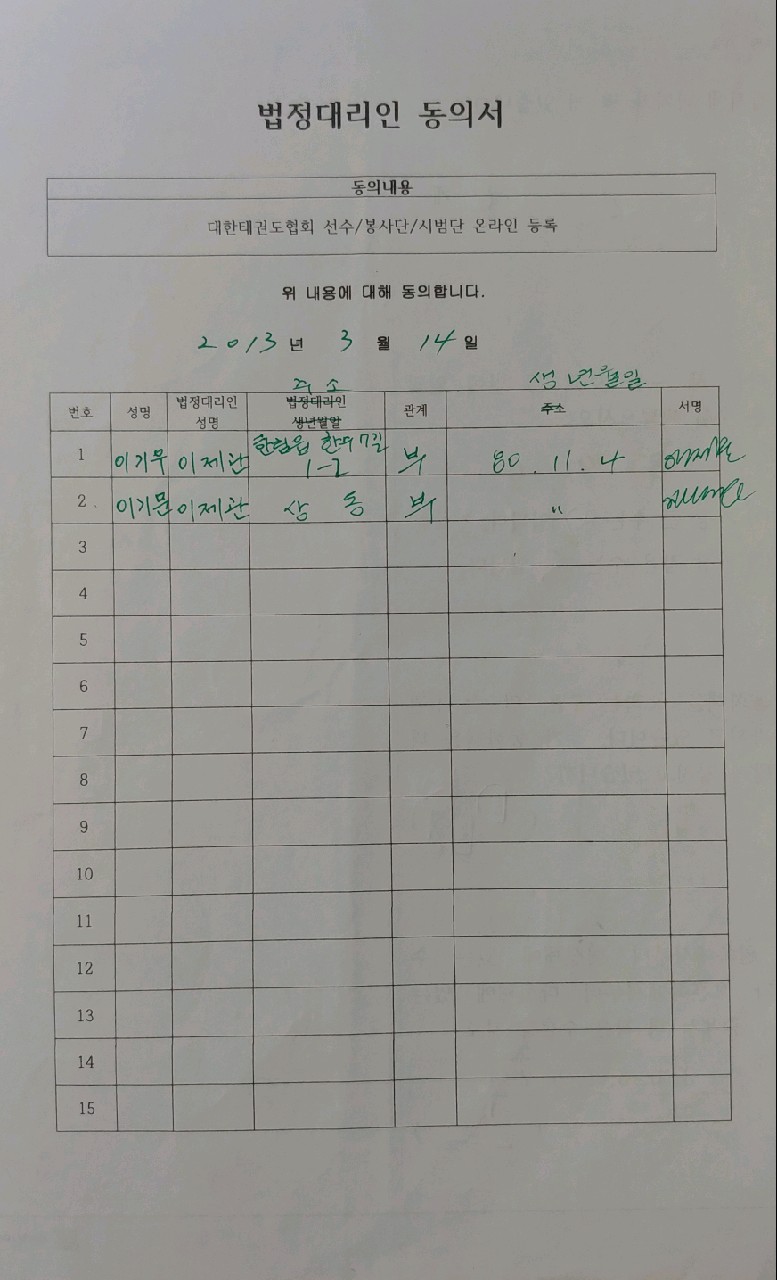 법정대리인 동의서
동의내용
대한태권도협회 선수/봉사단/시범단 온라인 등록
위 내용에 대해 동의합니다.
2013년 3월 14일
주소 생년월일
번호 성명 법정대리인 성명 법정대리인 생년월일 관계 주소 서명
1 이기무 이제관 한림읍 7길 1-2 부 80.11.4
2. 이기문 이제관 상동 부 〃
3
4
5
6
7
8
9
10
11
12
13
14
15